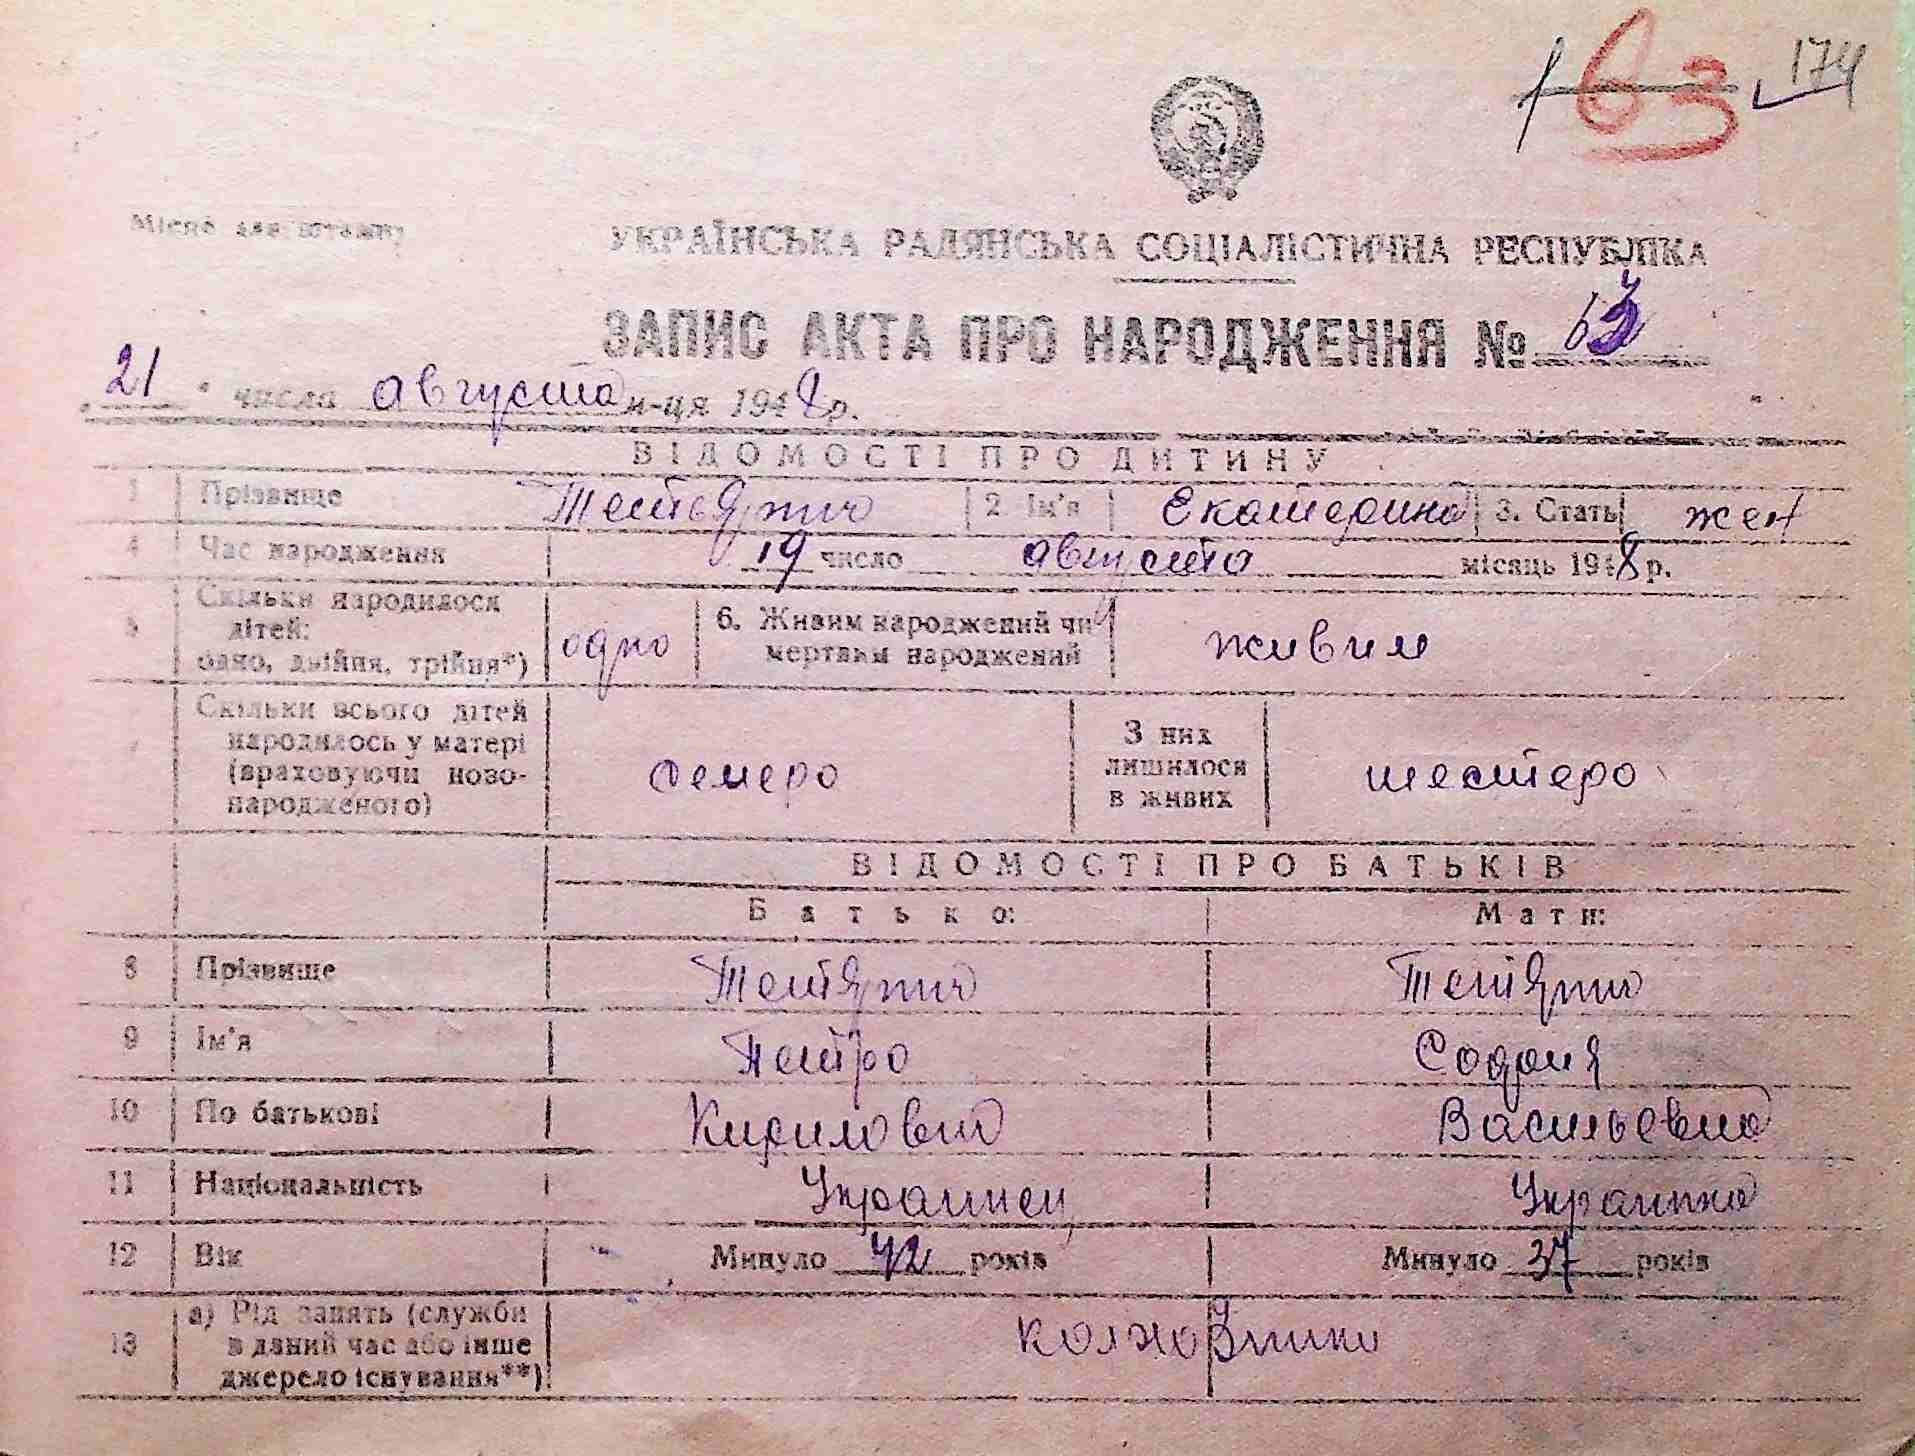 63 174
Місце для штампу
УКРАЇНСЬКА РАДЯНСЬКА СОЦІАЛІСТИЧНА РЕСПУБЛІКА
ЗАПИС АКТА ПРО НАРОДЖЕННЯ № 63
21 " числа августа м-ця 1948 р.
ВІДОМОСТІ ПРО ДИТИНУ
1 Прізвище 2 Ім'я Екатерина 3. Стать жен
4 Час народження 19 число августа місяць 1948 р.
Скільки народилося
5 дітей: одно 6. Живим народжений чи живим
одно, двійня, трійня*) мертвим народжений
Скільки всього дітей
народилось у матері З них
(враховуючи ново- семеро лишилося шестеро
народженого) в живих
ВІДОМОСТІ ПРО БАТЬКІВ
Батько: Мати:
8 Прізвище
9 Ім'я Петро София
10 По батькові Кирилович Васильевна
11 Національність Украинец Украинка
12 Вік Минуло 42 років Минуло 37 років
а) Рід занять (служби
13 в даний час або інше колхозники
джерело існування**)